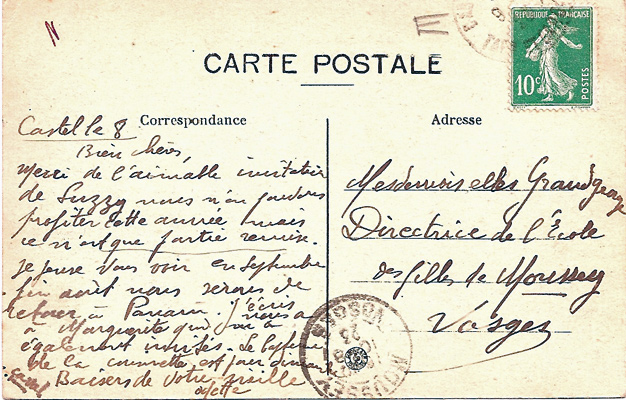 RÉPUBLIQUE FRANÇAISE
10c
POSTES
CARTE POSTALE
Correspondance
Adresse
Castel le 8
Bien chères,
Merci de l'aimable invitation
de Suzzy nous n'en
profiter cette année mais
ce n'est que partie remise.
Je pense vous voir en septembre
fin août nous serons de
retour à J'écris
à Marguerite qui nous a
également invités. Le
de la est pour
Baisers de votre vieille
Odette
Mesdemoiselles Grandgeorge
Directrice de l'École
des filles de Moussey
Vosges
MOUSSEY
VOSGES